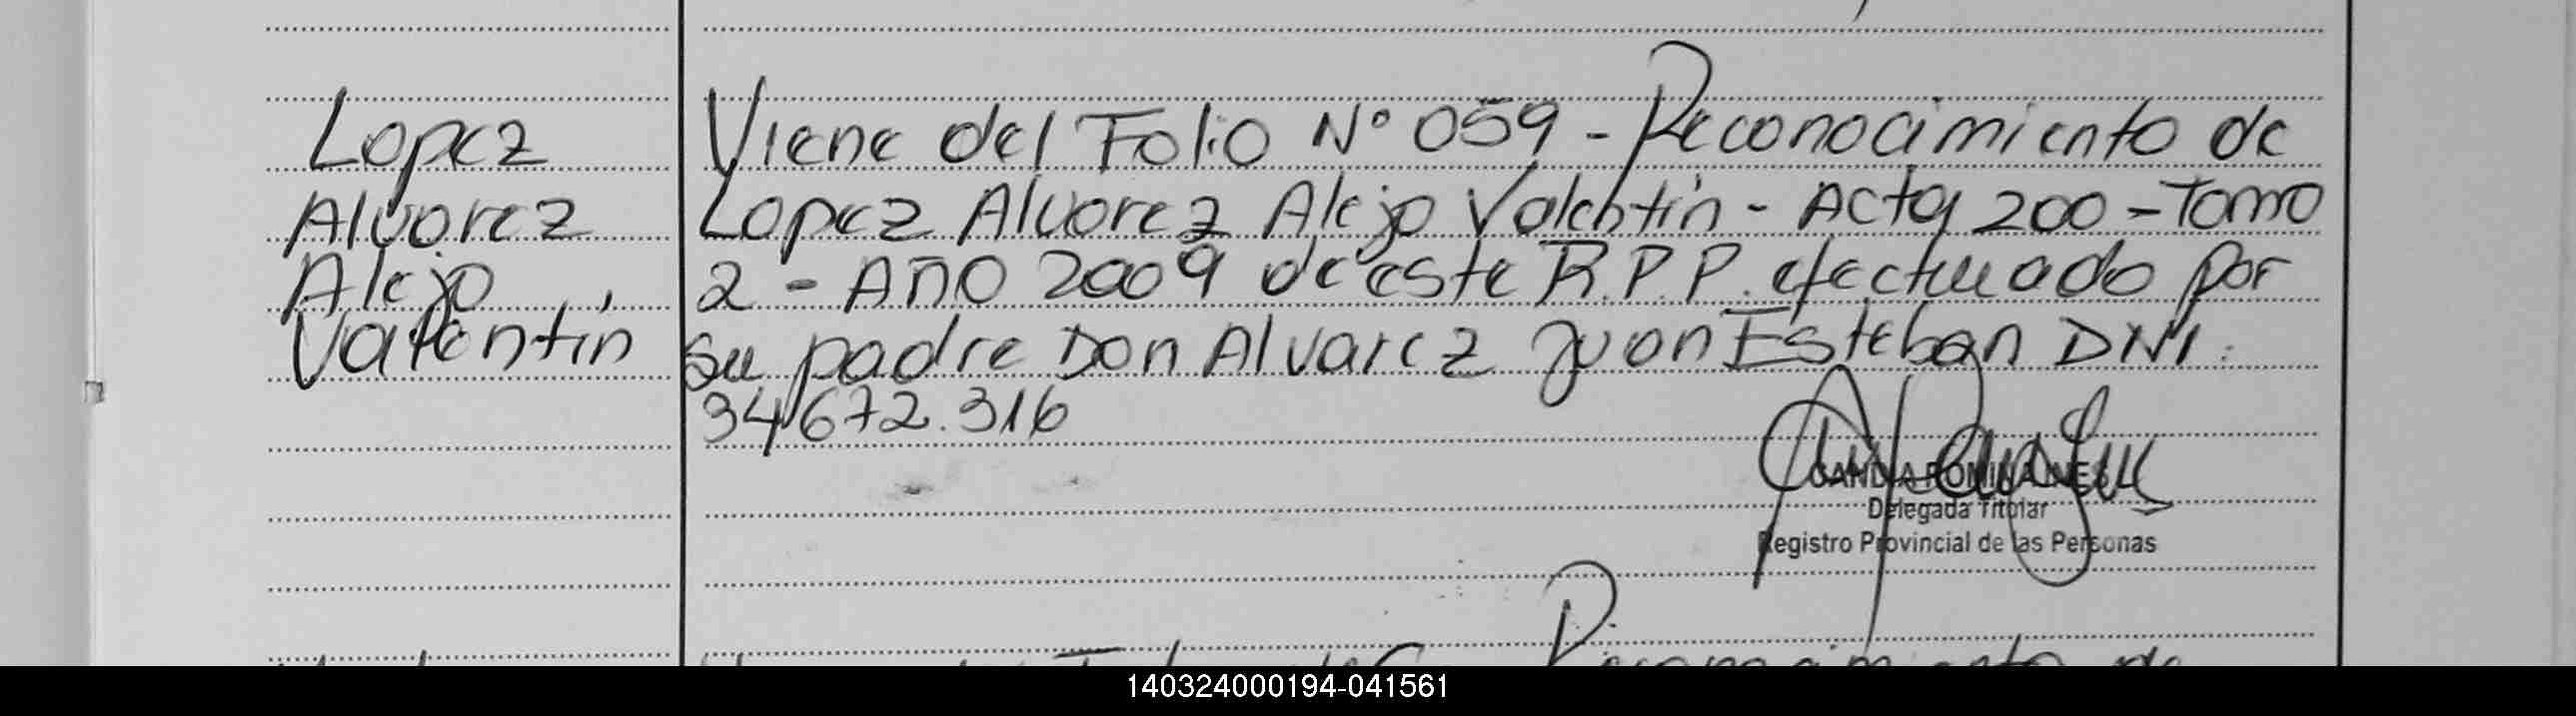 Lopez
Alvarez
Alejo
Valentín
Viene del Folio N° 059 - Reconocimiento de
Lopez Alvarez Alejo Valentín - Acta 200 - Tomo
2 - Año 2009 de este R.P.P. efectuado por
su padre Don Alvarez Juan Esteban DNI:
34.672.316
GANDIA ROMINA INES
Delegada Titular
Registro Provincial de las Personas
Reconocimiento de
140324000194-041561